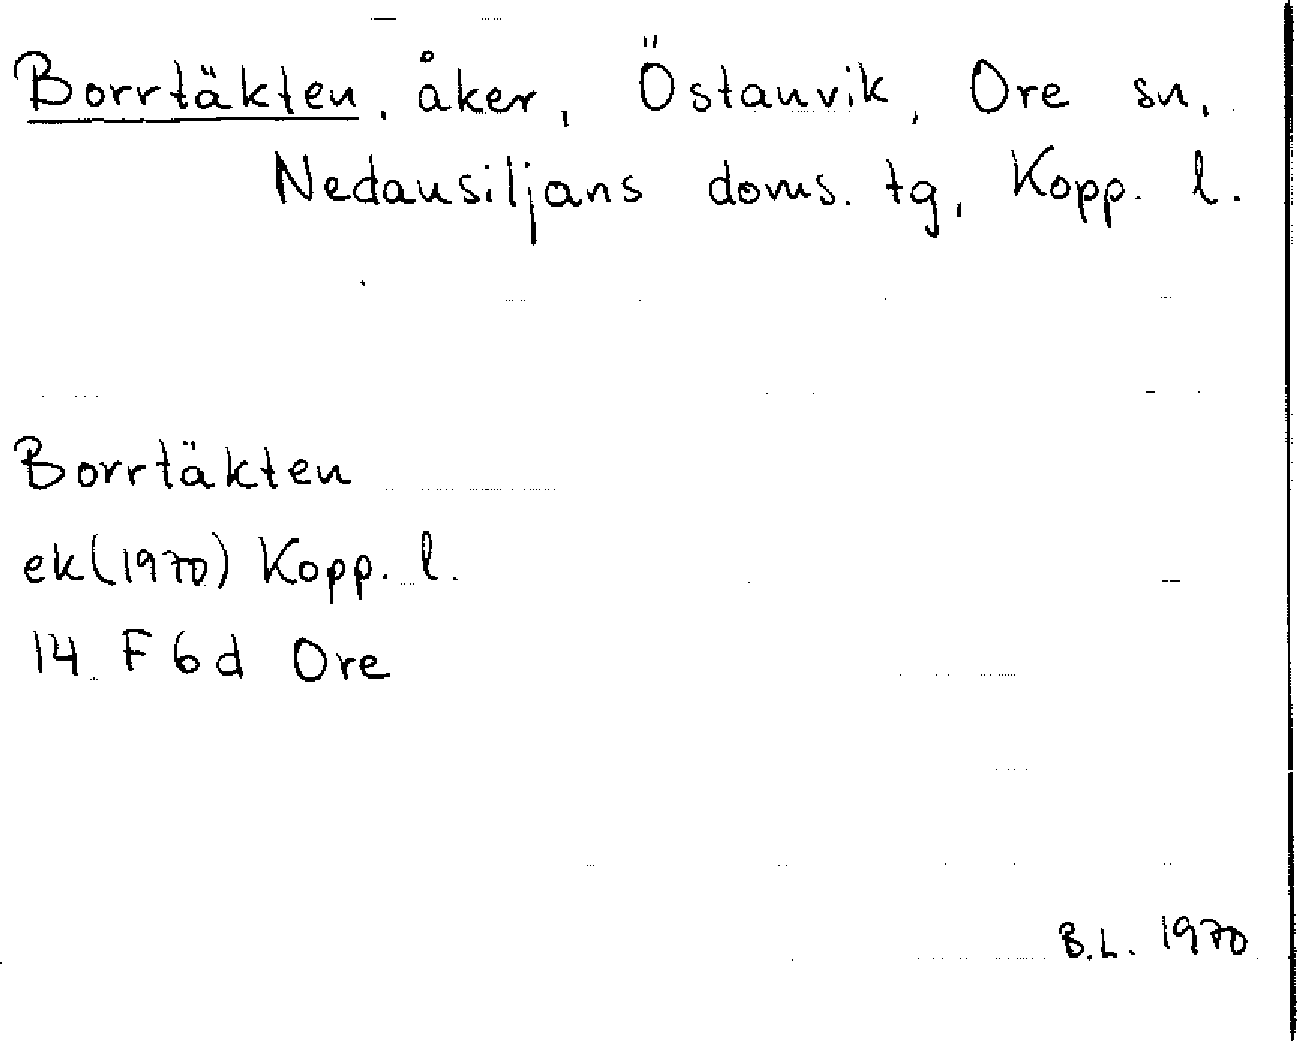 Borrtäkten, åker, Östanvik, Ore sn,
Nedansiljans doms. tg, Kopp. l.
Borrtäkten
ek(1970) Kopp. l.
14 F 6 d Ore
B.L. 1970